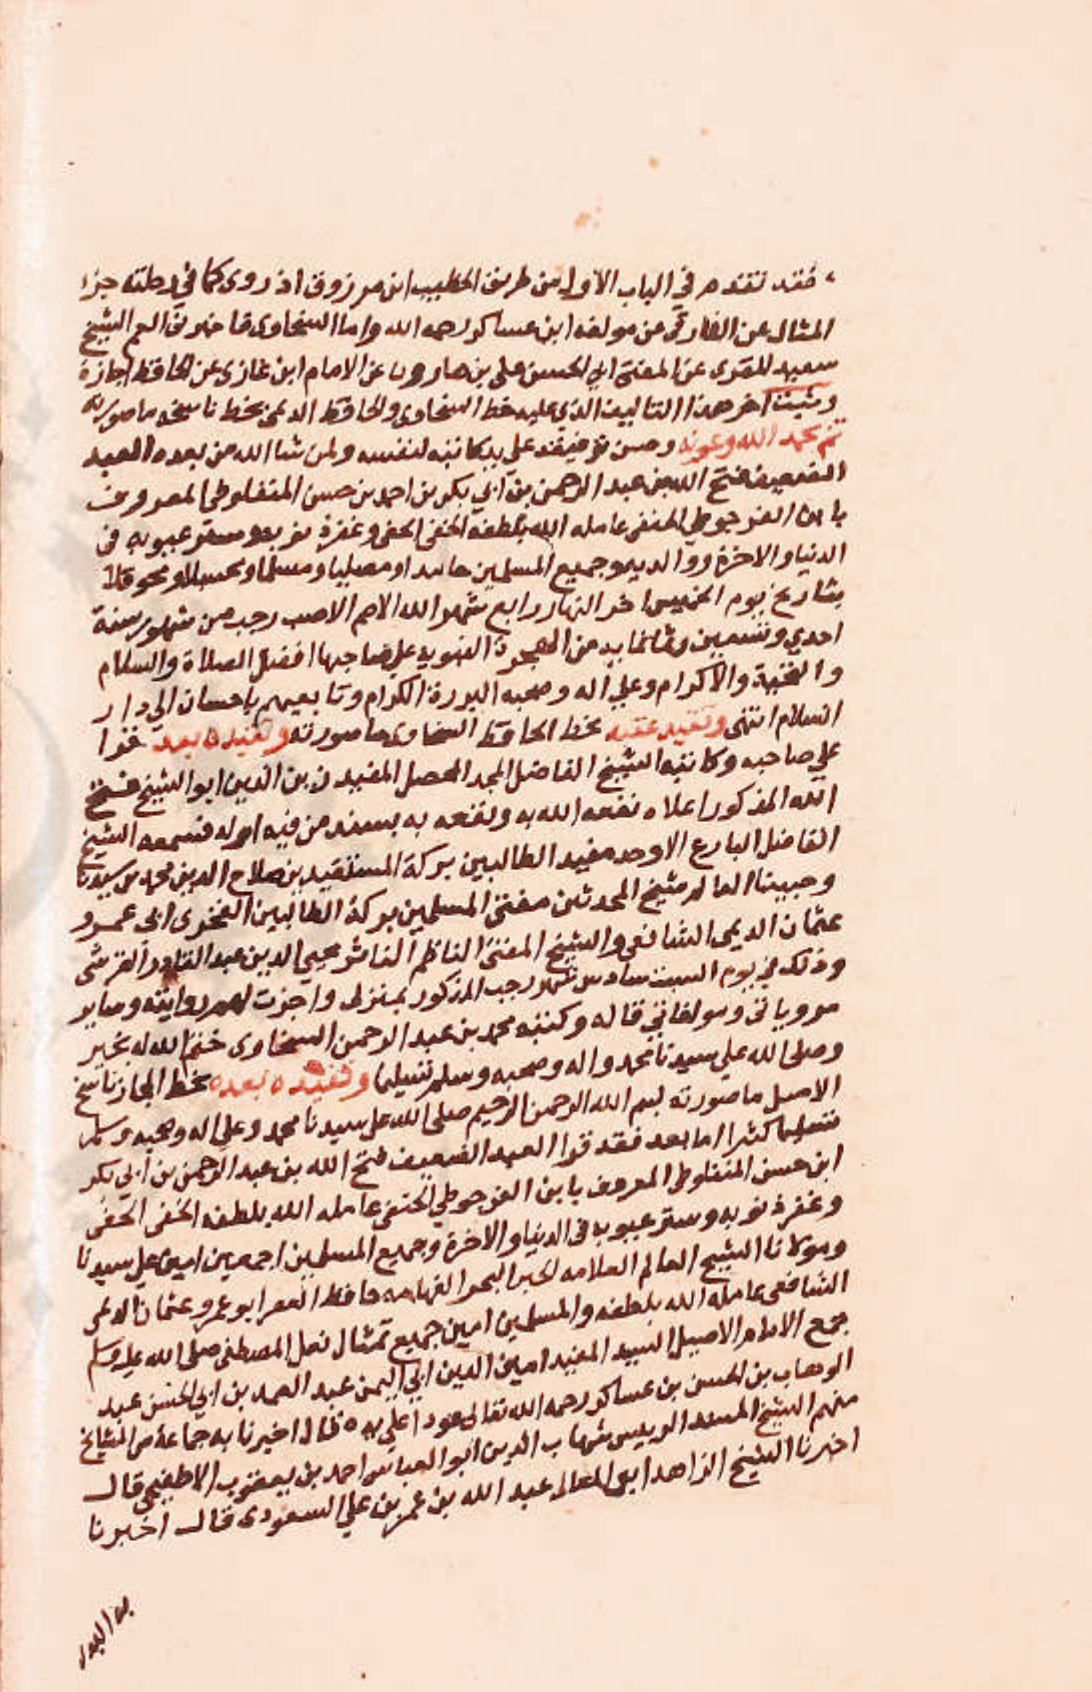 فقد تقدم في الباب الاول من طريق الخطيب ابن مرزوق اذ روى كما في رحلته جزء
المثال عن الفارقي عن مولفه ابن عساكر رحمه الله واما السخاوى فاخبرنا العم الشيخ
سعيد المقرى عن المفتى ابي الحسن علي بن هارون عن الامام ابن غازى عن الحافظ اجازة
وثبت اخر هذا التاليف الذي عليه خط السخاوى والحافظ الديمى بخط ناسخه ما صورته
تم بحمد الله وعونه وحسن توفيقه على يد كاتبه لنفسه ولمن شا الله من بعده العبد
الضعيف فتح الله بن عبد الرحمن بن ابي بكر بن احمد بن حسن المنفلوطي المعروف
بابن الفرجوطي الحنفي عامله الله بلطفه الخفى الحفى وغفر ذنوبه وستر عيوبه في
الدنيا والاخرة ووالديه وجميع المسلمين حامدا ومصليا ومسلما ومحسبلا ومحوقلا
بتاريخ يوم الخميس اخر النهار رابع شهر الله الاصم الاصب رجب من شهور سنة
احدي وتسعين وثمانماية من الهجرة النبوية على صاحبها افضل الصلاة والسلام
والتحية والاكرام وعلي اله وصحبه البررة الكرام وتابعيهم باحسان الي دار
السلام انتهى وتقيد عقبه بخط الحافظ السخاوى ما صورته وتقيد بعده قرا
علي صاحبه وكاتبه الشيخ الفاضل المجد المحصل المفيد زين الدين ابو الشيخ فتح
الله المذكور اعلاه نفعه الله به ونفعه به بسنده من فيه اوله فسمعه الشيخ
الفاضل البارع الاوحد مفيد الطالبين بركة المستفيدين صلاح الدين محمد بن سيدنا
وحبيبنا العالم شيخ المحدثين مفتى المسلمين بركة الطالبين الفخرى ابى عمرو
عثمان الديمى الشافعي والشيخ المفنن الناظم الناثر محيي الدين عبد القادر القرشي
وذلك في يوم السبت سادس شهر رجب المذكور بمنزلى واجزت لهم روايته وساير
مروياتى ومولفاتي قاله وكتبه محمد بن عبد الرحمن السخاوى ختم الله له بخير
وصلى الله علي سيدنا محمد واله وصحبه وسلم تسليما وتقيد بعده بخط المجاز ناسخ
الاصل ما صورته بسم الله الرحمن الرحيم صلى الله على سيدنا محمد وعلي اله وصحبه وسلم
تسليما كثيرا اما بعد فقد قرا العبد الضعيف فتح الله بن عبد الرحمن بن ابي بكر
ابن حسن المنفلوطى المعروف بابن الفرجوطي الحنفي عامله الله بلطفه الخفى الحفى
وغفر ذنوبه وستر عيوبه في الدنيا والاخرة وجميع المسلمين اجمعين امين على سيدنا
ومولانا الشيخ العالم العلامه الحبر البحر الفهامه حافظ العصر ابو عمرو عثمان الديمى
الشافعي عامله الله بلطفه والمسلمين امين جميع تمثال نعل المصطفى صلى الله عليه وسلم
جمع الامام الاصيل السيد المفيد امين الدين ابي اليمن عبد الصمد بن ابي الحسن عبد
الوهاب بن الحسن بن عساكر رحمه الله تعالى عودا على بدء قال اخبرنا به جماعة من المشايخ
منهم الشيخ المسند الرييس شهاب الدين ابو العباس احمد بن يعقوب الاطفيحى قال
اخبرنا الشيخ الزاهد ابو المعالى عبد الله بن عمر بن علي السعودى قال اخبرنا